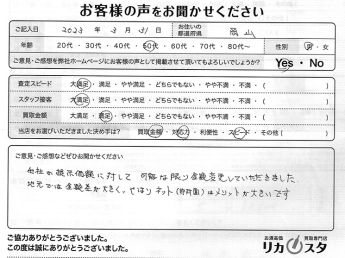 お客様の声をお聞かせください
ご記入日 2023 年 3 月 31 日 お住いの都道府県 岡山
年齢 20代・30代・40代・50代・60代・70代・80代〜 性別 男・女
ご意見・ご感想を弊社ホームページにお客様の声として掲載させて頂いてもよろしいでしょうか? Yes・No
査定スピード 大満足・満足・やや満足・どちらでもない・やや不満・不満・( )
スタッフ接客 大満足・満足・やや満足・どちらでもない・やや不満・不満・( )
買取金額 大満足・満足・やや満足・どちらでもない・やや不満・不満・( )
当店をお選びいただきました決め手は? 買取金額・対応力・利便性・スピード・その他( )
ご意見・ご感想などぜひお聞かせください
他社の提示価額に対して 可能な限り金額変更していただきました。
地元では金額差が大きく、やはりネット はメリットが大きいです
ご協力ありがとうございました。
この度は誠にありがとうございました。
お酒高価買取専門店
リカスタ